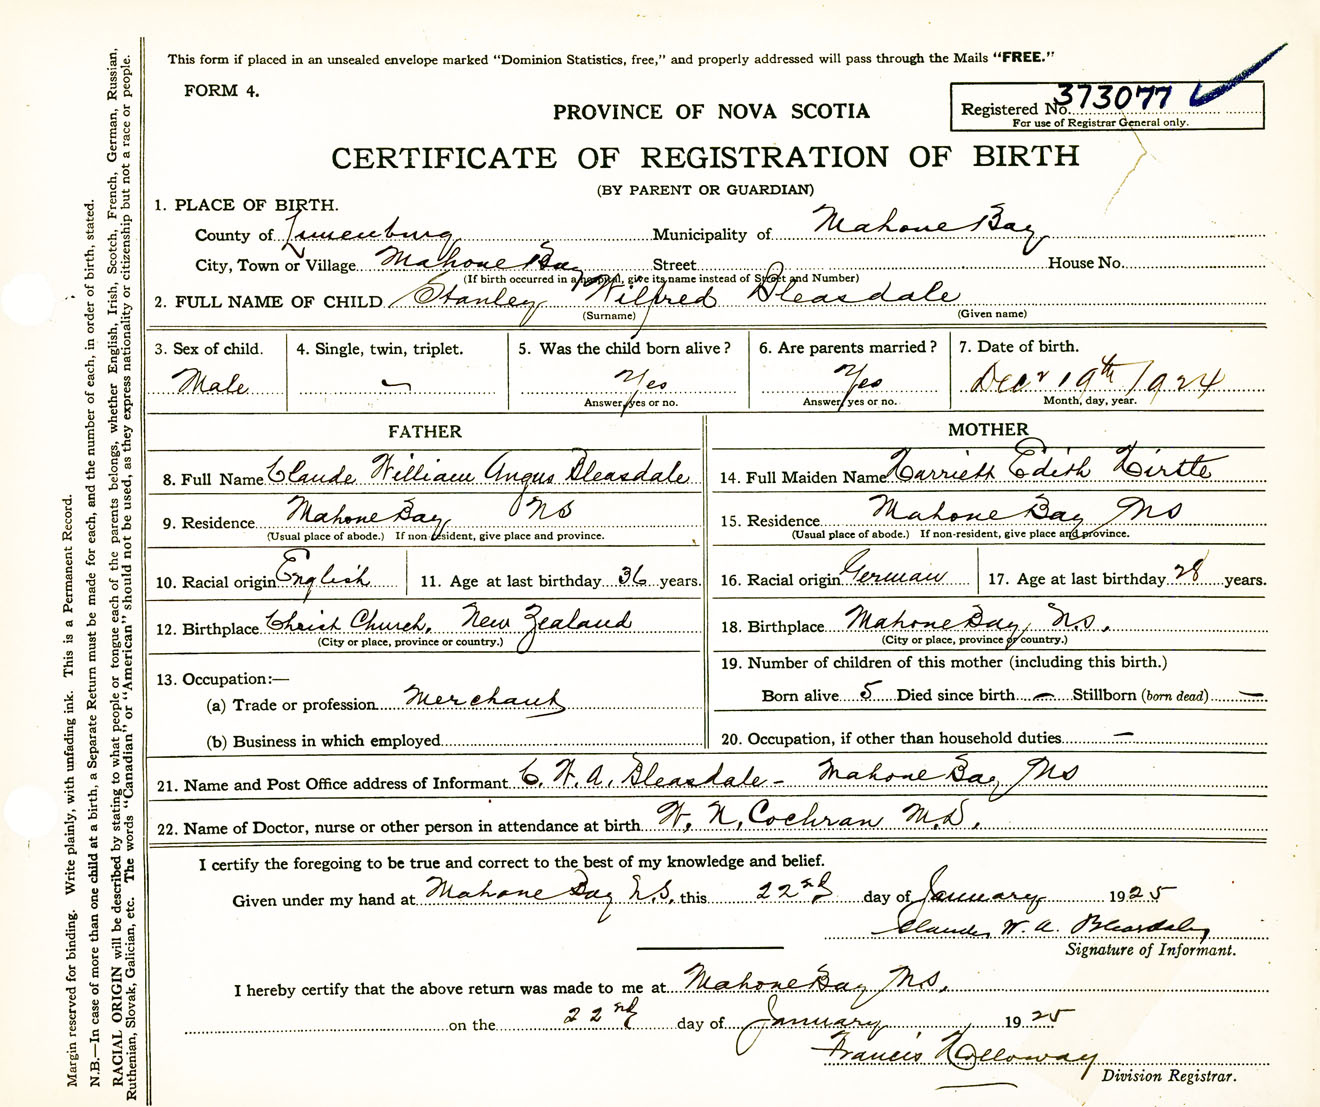 This form if placed in an unsealed envelope marked "Dominion Statistics, free," and properly addressed will pass through the Mails "FREE."
FORM 4.
Registered No. 373077
For use of Registrar General only.
PROVINCE OF NOVA SCOTIA
CERTIFICATE OF REGISTRATION OF BIRTH
(BY PARENT OR GUARDIAN)
1. PLACE OF BIRTH.
County of Lunenburg Municipality of Mahone Bay
City, Town or Village Mahone Bay Street House No.
(If birth occurred in a hospital, give its name instead of Street and Number)
2. FULL NAME OF CHILD Stanley Wilfred Bleasdale
(Surname) (Given name)
3. Sex of child. 4. Single, twin, triplet. 5. Was the child born alive? 6. Are parents married? 7. Date of birth.
Male Yes Yes Decr 19th 1924
Answer yes or no. Answer yes or no. Month, day, year.
FATHER MOTHER
8. Full Name Claude William Angus Bleasdale 14. Full Maiden Name Harriett Edith Hirtle
9. Residence Mahone Bay NS 15. Residence Mahone Bay NS
(Usual place of abode.) If non-resident, give place and province. (Usual place of abode.) If non-resident, give place and province.
10. Racial origin English 11. Age at last birthday 36 years. 16. Racial origin German 17. Age at last birthday 28 years.
12. Birthplace Christ Church, New Zealand 18. Birthplace Mahone Bay N.S.
(City or place, province or country.) (City or place, province or country.)
13. Occupation:— 19. Number of children of this mother (including this birth.)
(a) Trade or profession Merchant Born alive 5 Died since birth — Stillborn (born dead) —
(b) Business in which employed 20. Occupation, if other than household duties —
21. Name and Post Office address of Informant C. W. A. Bleasdale - Mahone Bay NS
22. Name of Doctor, nurse or other person in attendance at birth W. N. Cochran M.D.
I certify the foregoing to be true and correct to the best of my knowledge and belief.
Given under my hand at Mahone Bay N.S. this 22nd day of January 1925
Claude W. A. Bleasdale
Signature of Informant.
I hereby certify that the above return was made to me at Mahone Bay NS.
on the 22nd day of January 1925
Francis Holloway
Division Registrar.
Margin reserved for binding. Write plainly, with unfading ink. This is a Permanent Record.
N.B.—In case of more than one child at a birth, a Separate Return must be made for each, and the number of each, in order of birth, stated.
RACIAL ORIGIN will be described by stating to what people or tongue each of the parents belongs, whether English, Irish, Scotch, French, German, Russian,
Ruthenian, Slovak, Galician, etc. The words "Canadian" or "American" should not be used, as they express nationality or citizenship but not a race or people.